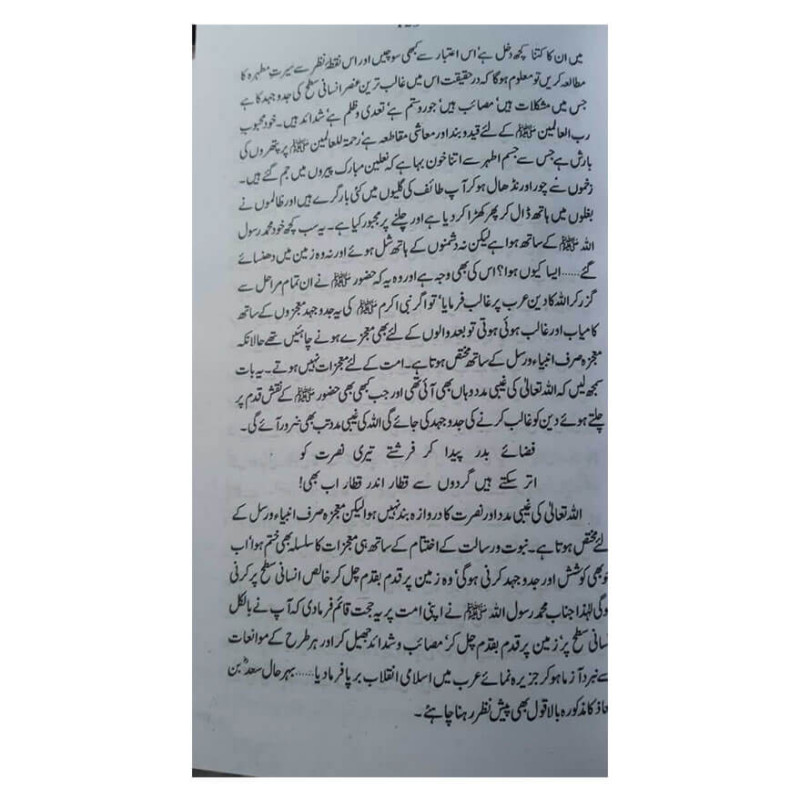 میں ان کا کتنا کچھ دخل ہے‘ اس اعتبار سے کبھی سوچیں اور اس نقطۂ نظر سے سیرتِ مطہرہ کا
مطالعہ کریں تو معلوم ہوگا کہ درحقیقت اس میں غالب ترین عنصر انسانی سطح کی جدوجہد کا ہے
جس میں مشکلات ہیں‘ مصائب ہیں‘ جور و ستم ہے‘ تعدی و ظلم ہے‘ شدائد ہیں۔ خود محبوب
رب العالمین ﷺ کے لئے قید و بند اور معاشی مقاطعہ ہے‘ رحمۃ للعالمین ﷺ پر پتھروں کی
بارش ہے جس سے جسم اطہر سے اتنا خون بہا ہے کہ نعلین مبارک پیروں میں جم گئے ہیں۔
زخموں نے چور اور نڈھال ہو کر آپ طائف کی گلیوں میں کئی بار گرے ہیں اور ظالموں نے
بغلوں میں ہاتھ ڈال کر پھر کھڑا کر دیا ہے اور چلنے پر مجبور کیا ہے۔ یہ سب کچھ خود محمد رسول
اللہ ﷺ کے ساتھ ہوا ہے لیکن نہ دشمنوں کے ہاتھ شل ہوئے اور نہ وہ زمین میں دھنسائے
گئے...... ایسا کیوں ہوا؟ اس کی بھی وجہ ہے اور وہ یہ کہ حضور ﷺ نے ان تمام مراحل سے
گزر کر اللہ کا دین عرب پر غالب فرمایا‘ تو اگر نبی اکرم ﷺ کی یہ جدوجہد معجزوں کے ساتھ
کامیاب اور غالب ہوئی ہوتی تو بعد والوں کے لئے بھی معجزے ہونے چاہئیں تھے حالانکہ
معجزہ صرف انبیاء و رسل کے ساتھ مختص ہوتا ہے۔ امت کے لئے معجزات نہیں ہوتے۔ یہ بات
سمجھ لیں کہ اللہ تعالیٰ کی غیبی مدد وہاں بھی آئی تھی اور جب کبھی بھی حضور ﷺ کے نقش قدم پر
چلتے ہوئے دین کو غالب کرنے کی جدوجہد کی جائے گی اللہ کی غیبی مدد تب بھی ضرور آئے گی۔
فضائے بدر پیدا کر فرشتے تیری نصرت کو
اتر سکتے ہیں گردوں سے قطار اندر قطار اب بھی!
اللہ تعالیٰ کی غیبی مدد اور نصرت کا دروازہ بند نہیں ہوا لیکن معجزہ صرف انبیاء و رسل کے
لئے مختص ہوتا ہے۔ نبوت و رسالت کے اختتام کے ساتھ ہی معجزات کا سلسلہ بھی ختم ہوا‘ اب
جو بھی کوشش اور جدوجہد کرنی ہوگی‘ وہ زمین پر قدم بقدم چل کر خالص انسانی سطح پر کرنی
وگی لہٰذا جناب محمد رسول اللہ ﷺ نے اپنی امت پر یہ حجت قائم فرما دی کہ آپ نے بالکل
سانی سطح پر‘ زمین پر قدم بقدم چل کر‘ مصائب و شدائد جھیل کر اور ہر طرح کے موانعات
سے نبرد آزما ہو کر جزیرہ نمائے عرب میں اسلامی انقلاب برپا فرما دیا...... بہرحال سعدؓ بن
عاذ کا مذکورہ بالا قول بھی پیش نظر رہنا چاہئے۔